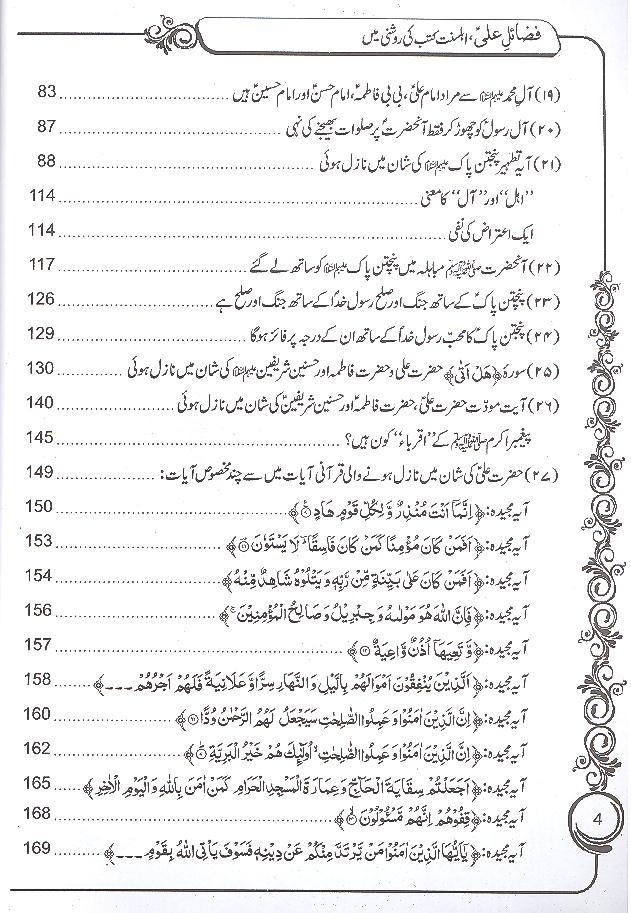 فضائلِ علیؑ، اہلسنت کتب کی روشنی میں
(۱۹) آلِ محمد علیہم السلام سے مراد امام علیؑ، بی بی فاطمہؑ، امام حسنؑ اور امام حسینؑ ہیں ........ 83
(۲۰) آلِ رسولؑ کو چھوڑ کر فقط آنحضرتؐ پر صلوات بھیجنے کی نہی ........ 87
(۲۱) آیہ تطہیر پنجتن پاک علیہم السلام کی شان میں نازل ہوئی ........ 88
’’اہل‘‘ اور ’’آل‘‘ کا معنی ........ 114
ایک اعتراض کی نفی ........ 114
(۲۲) آنحضرت صلی اللہ علیہ وآلہ وسلم مباہلہ میں پنجتن پاک علیہم السلام کو ساتھ لے گئے ........ 117
(۲۳) پنجتن پاکؑ کے ساتھ جنگ اور صلح رسول خداؐ کے ساتھ جنگ اور صلح ہے ........ 126
(۲۴) پنجتن پاکؑ کا محبّ رسول خداؐ کے ساتھ ان کے درجہ پر فائز ہوگا ........ 129
(۲۵) سورۂ ﴿هَلْ اَتٰی﴾ حضرت علی و حضرت فاطمہ اور حسنین شریفین علیہم السلام کی شان میں نازل ہوئی ........ 130
(۲۶) آیت مودّت حضرت علیؑ، حضرت فاطمہؑ اور حسنین شریفینؑ کی شان میں نازل ہوئی ........ 140
پیغمبر اکرم صلی اللہ علیہ وآلہ وسلم کے ’’اقرباء‘‘ کون ہیں؟ ........ 145
(۲۷) حضرت علیؑ کی شان میں نازل ہونے والی قرآنی آیات میں سے چند مخصوص آیات: ........ 149
آیہ مجیدہ: ﴿اِنَّمَاۤ اَنْتَ مُنْذِرٌ وَّلِكُلِّ قَوْمٍ هَادٍ﴾ ........ 150
آیہ مجیدہ: ﴿اَفَمَنْ كَانَ مُؤْمِنًا كَمَنْ كَانَ فَاسِقًا ؕ لَا یَسْتَوٗنَ﴾ ........ 153
آیہ مجیدہ: ﴿اَفَمَنْ كَانَ عَلٰی بَیِّنَةٍ مِّنْ رَّبِّهٖ وَیَتْلُوْهُ شَاهِدٌ مِّنْهُ﴾ ........ 154
آیہ مجیدہ: ﴿فَاِنَّ اللّٰهَ هُوَ مَوْلٰىهُ وَجِبْرِیْلُ وَصَالِحُ الْمُؤْمِنِیْنَ﴾ ........ 156
آیہ مجیدہ: ﴿وَّتَعِیَهَاۤ اُذُنٌ وَّاعِیَةٌ﴾ ........ 157
آیہ مجیدہ: ﴿اَلَّذِیْنَ یُنْفِقُوْنَ اَمْوَالَهُمْ بِالَّیْلِ وَالنَّهَارِ سِرًّا وَّعَلَانِیَةً فَلَهُمْ اَجْرُهُمْ ۔۔۔﴾ ........ 158
آیہ مجیدہ: ﴿اِنَّ الَّذِیْنَ اٰمَنُوْا وَعَمِلُوا الصّٰلِحٰتِ سَیَجْعَلُ لَهُمُ الرَّحْمٰنُ وُدًّا﴾ ........ 160
آیہ مجیدہ: ﴿اِنَّ الَّذِیْنَ اٰمَنُوْا وَعَمِلُوا الصّٰلِحٰتِ ۙ اُولٰٓىِٕكَ هُمْ خَیْرُ الْبَرِیَّةِ﴾ ........ 162
آیہ مجیدہ: ﴿اَجَعَلْتُمْ سِقَایَةَ الْحَآجِّ وَعِمَارَةَ الْمَسْجِدِ الْحَرَامِ كَمَنْ اٰمَنَ بِاللّٰهِ وَالْیَوْمِ الْاٰخِرِ﴾ ........ 165
آیہ مجیدہ: ﴿وَقِفُوْهُمْ اِنَّهُمْ مَّسْئُوْلُوْنَ﴾ ........ 168
آیہ مجیدہ: ﴿یٰۤاَیُّهَا الَّذِیْنَ اٰمَنُوْا مَنْ یَّرْتَدَّ مِنْكُمْ عَنْ دِیْنِهٖ فَسَوْفَ یَاْتِی اللّٰهُ بِقَوْمٍ ۔۔۔﴾ ........ 169
4